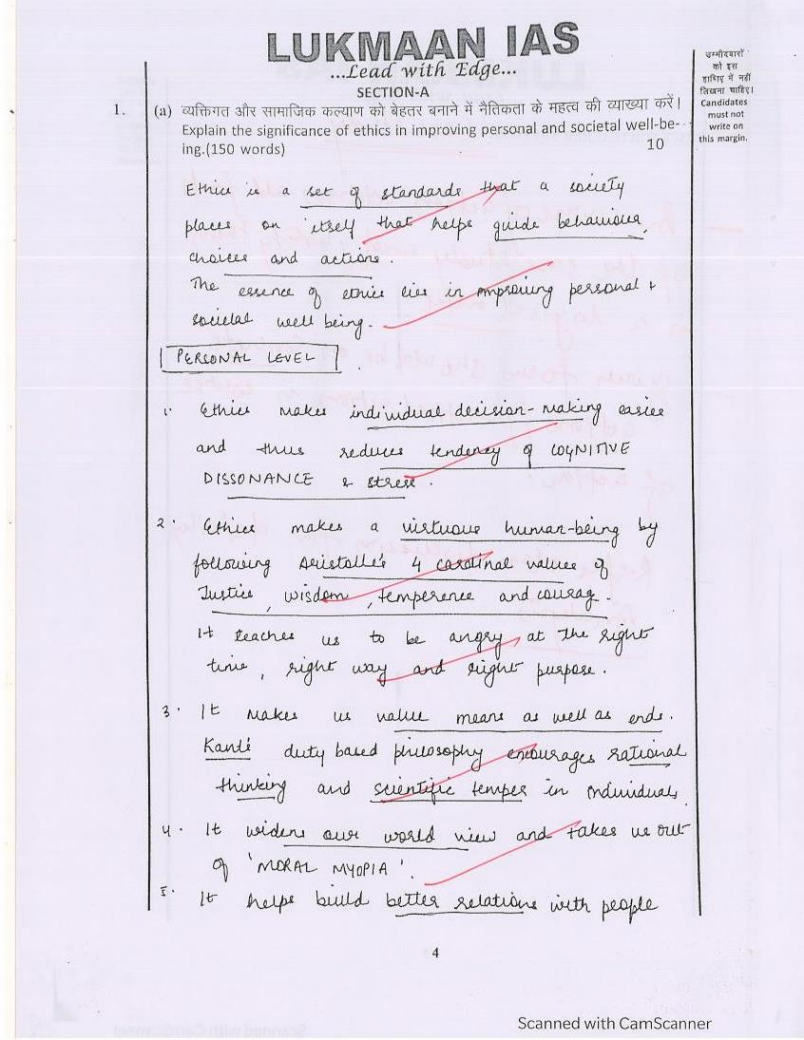 LUKMAAN IAS
...Lead with Edge...
SECTION-A
उम्मीदवारों
को इस
हाशिए में नहीं
लिखना चाहिए।
Candidates
must not
write on
this margin.
1. (a) व्यक्तिगत और सामाजिक कल्याण को बेहतर बनाने में नैतिकता के महत्व की व्याख्या करें।
Explain the significance of ethics in improving personal and societal well-be-
ing.(150 words) 10
Ethics is a set of standards that a society
places on itself that helps guide behaviour,
choices and actions.
The essence of ethics lies in improving personal &
societal well being.
PERSONAL LEVEL
1. Ethics makes individual decision-making easier
and thus reduces tendency of COGNITIVE
DISSONANCE & stress.
2. Ethics makes a virtuous human-being by
following Aristotle's 4 cardinal values of
Justice, wisdom, temperence and courag.
It teaches us to be angry at the right
time, right way and right purpose.
3. It makes us value means as well as ends.
Kant's duty based philosophy encourages rational
thinking and scientific temper in individuals.
4. It widens our world view and takes us out
of 'MORAL MYOPIA'.
5. It helps build better relations with people
4
Scanned with CamScanner